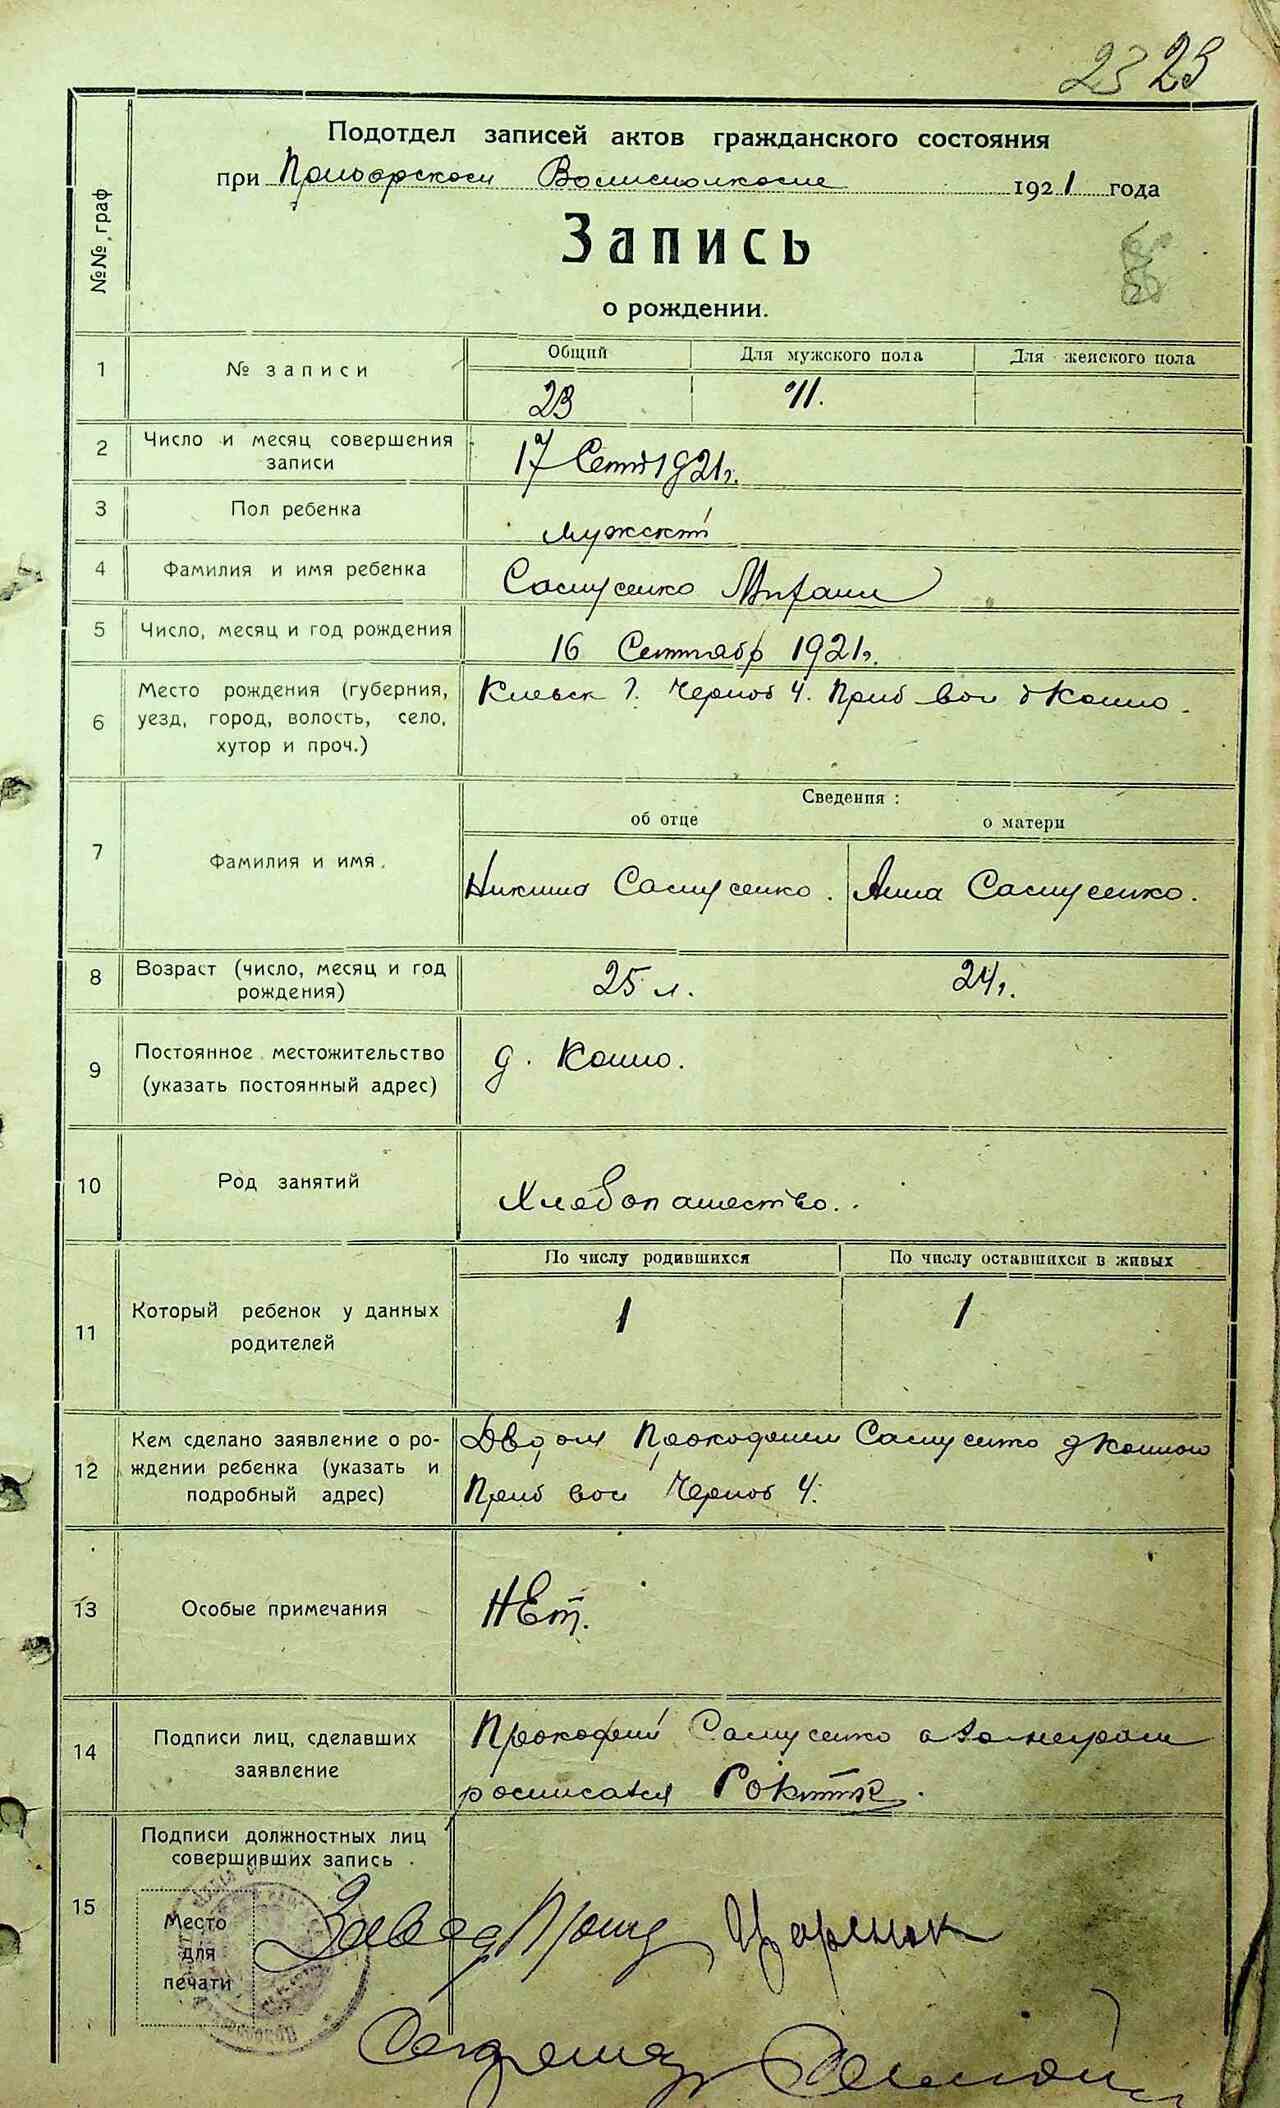 23 23
Подотдел записей актов гражданского состояния
при Волисполкоме 1921 года
№№ граф
Запись
о рождении.
1 № записи Общий Для мужского пола Для женского пола
23 11.
2 Число и месяц совершения
записи
17 Сент 1921г.
3 Пол ребенка
мужский
4 Фамилия и имя ребенка Самусенко
5 Число, месяц и год рождения 16 Сентябр 1921г.
6 Место рождения (губерния,
уезд, город, волость, село,
хутор и проч.)
Киевск г. Черноб У. Приб вол д Кошно.
Сведения :
об отце о матери
7 Фамилия и имя.
Никита Самусенко. Анна Самусенко.
8 Возраст (число, месяц и год
рождения)
25 л. 24 г.
9 Постоянное местожительство
(указать постоянный адрес)
д. Кошно.
10 Род занятий
Хлебопашество.
По числу родившихся По числу оставшихся в живых
11 Который ребенок у данных
родителей
1 1
12 Кем сделано заявление о ро-
ждении ребенка (указать и
подробный адрес)
Дедом Прокофием Самусенко д
Приб вол Черноб У.
13 Особые примечания
НЕт.
14 Подписи лиц, сделавших
заявление
Прокофий Самусенко а за неграм
росписался
15 Подписи должностных лиц
совершивших запись.
Место
для
печати
Завед